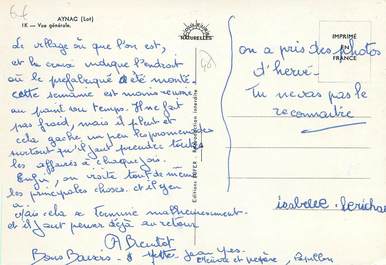 AYNAC (Lot)
IX. — Vue générale.
Le village où que l'on est,
et la croix indique l'endroit
où le préfabriqué a été monté.
cette semaine est moins
au point vue temps. Il ne fait
pas froid, mais il pleut et
cela gâche un peu les promenades
surtout qu'il faut prendre toutes
les affaires à chaque fois.
Enfin, on visite tout de même
les principales choses. et il y en
a.
Mais cela se termine malheureusement
et il faut penser déjà au retour
A Bientôt
Bons Baisers
Jean Yves
Papillon
NATURELLES
Editions
Reproduction interdite
IMPRIMÉ
EN
FRANCE
on a pris des photos
d'hervé.
Tu ne vas pas le
reconnaître
isabelle